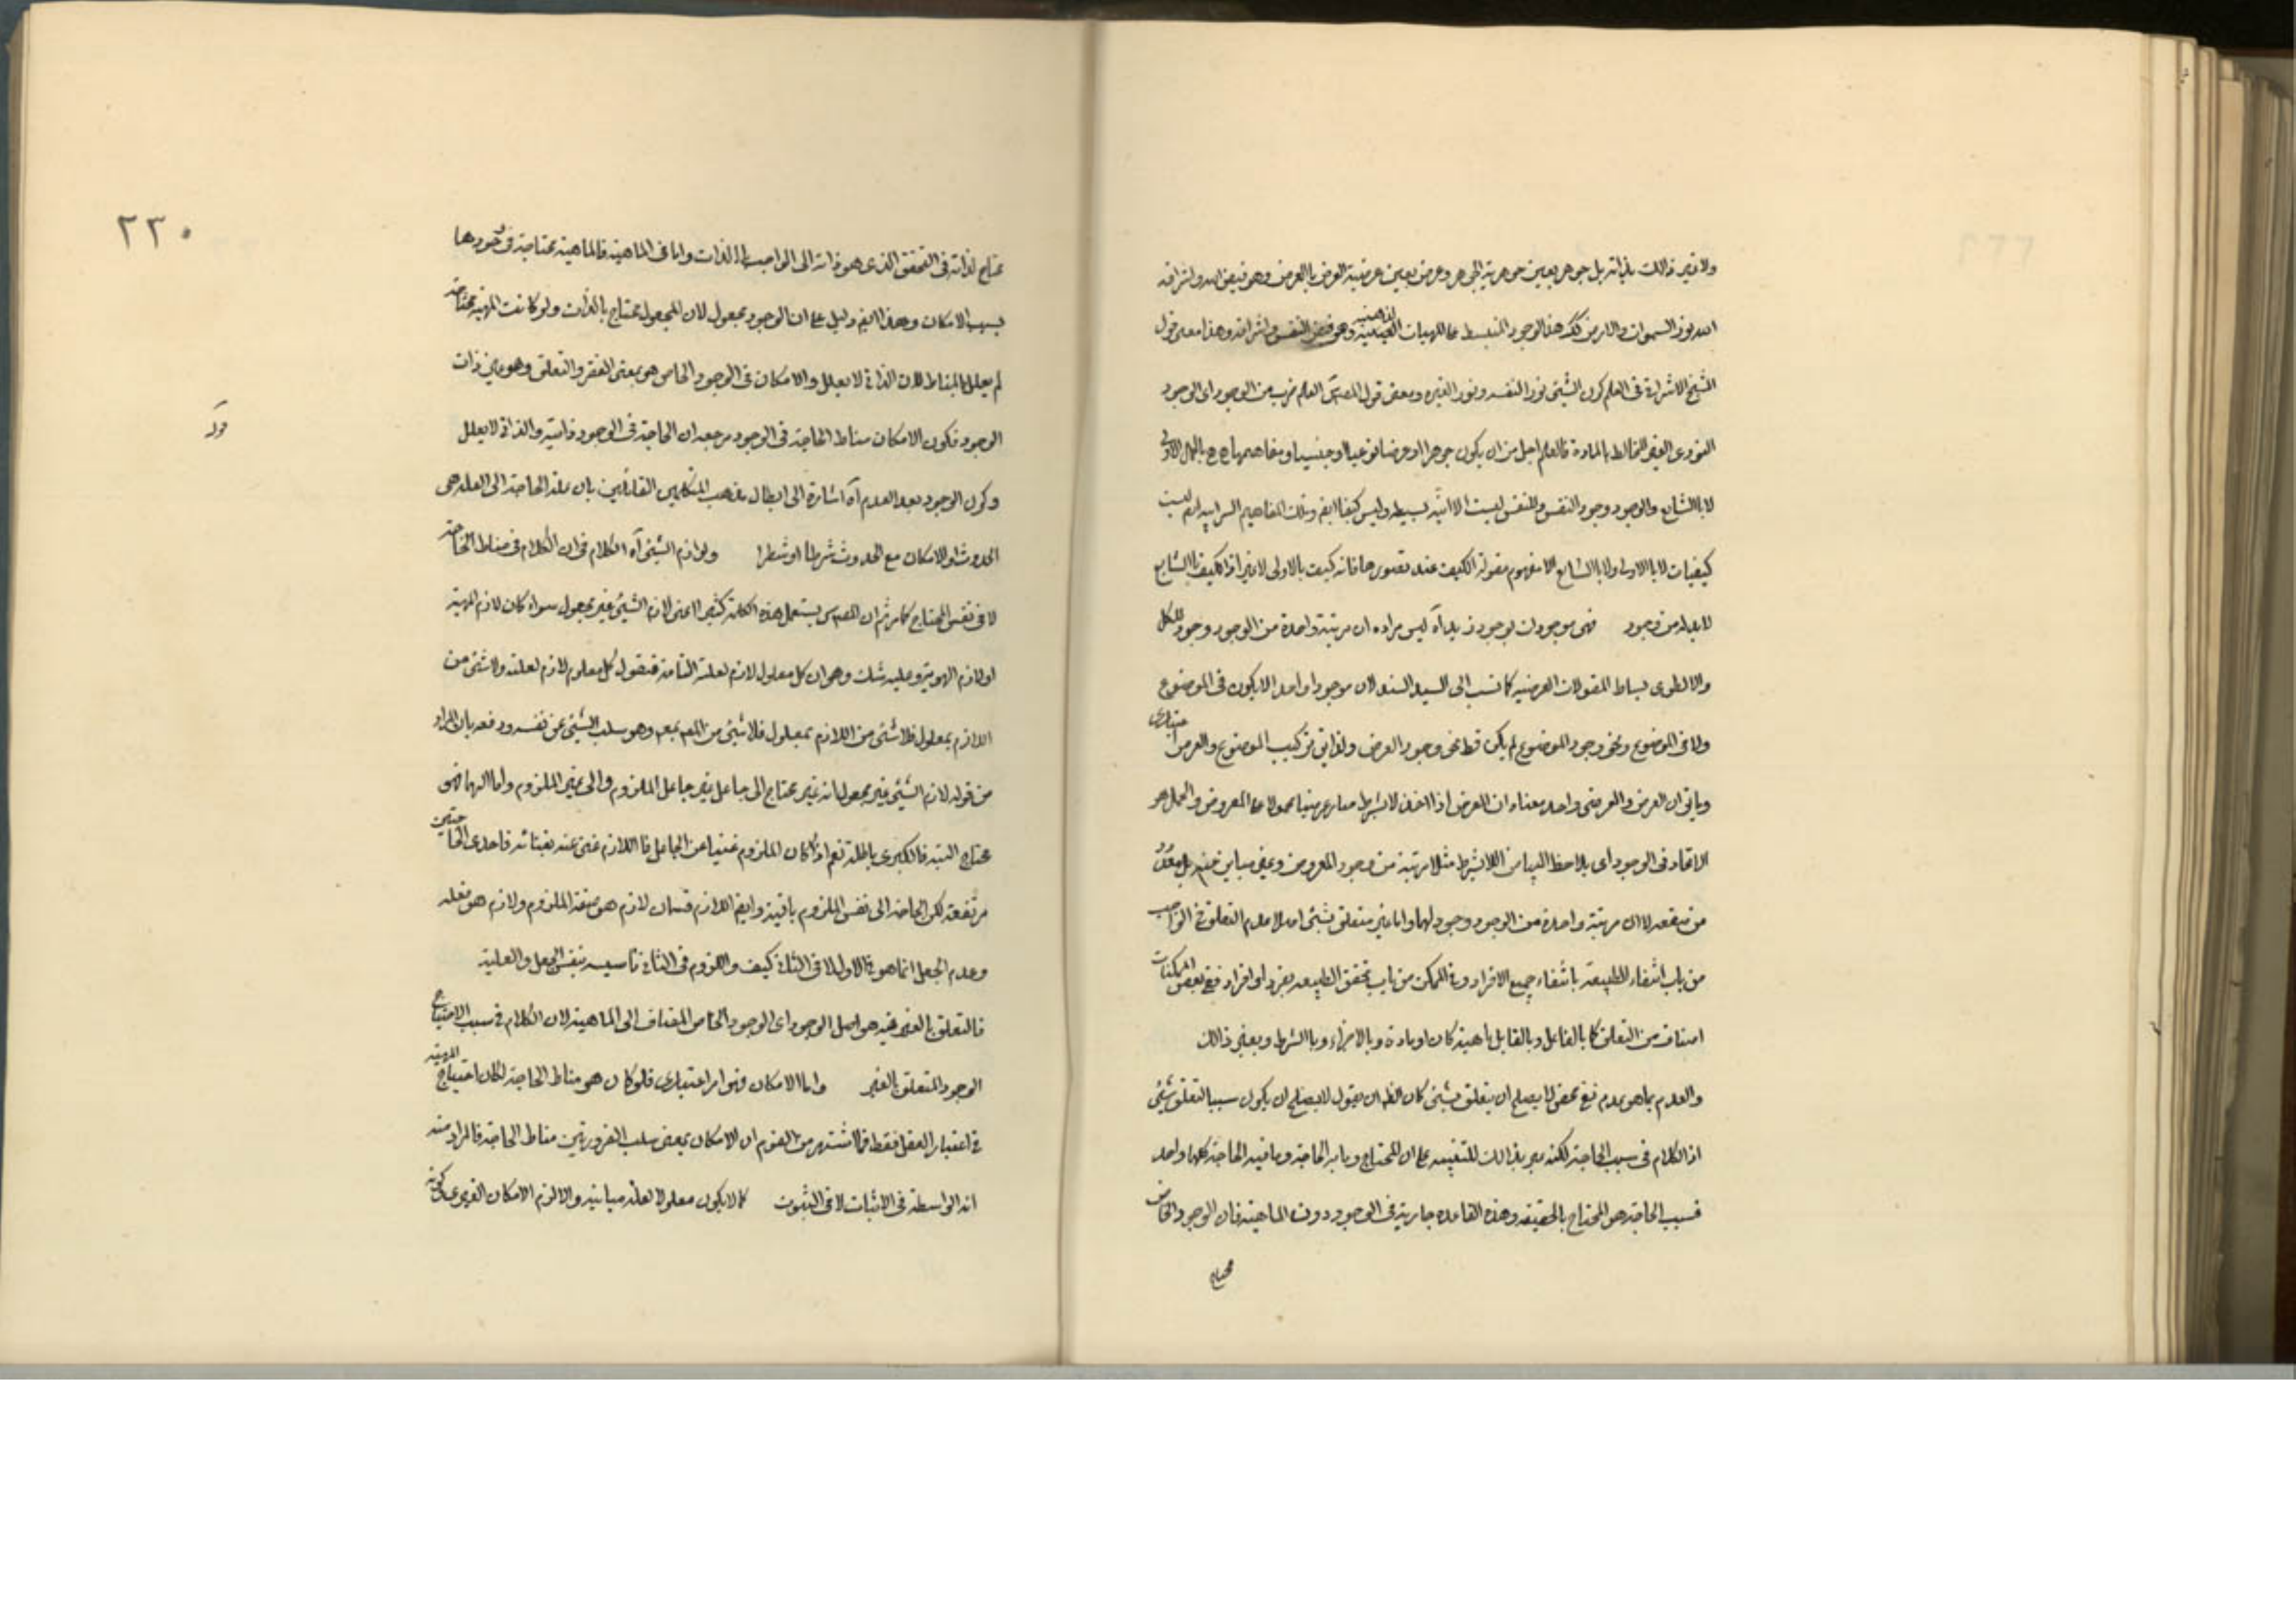 ولا غير ذلك بذاته بل جوهر بعين جوهرية الجوهر وعرض بعين عرضية العرض بالعرض وهو فيض الله واشراقه
الله نور السموات والارض كك هذا الوجود المنبسط على المهيات الذهنية وهو فيض النفس واشراقه وهذا معنى قول
الشيخ الاشراقى فى العلم كون الشيئ نورا لنفسه ونورا لغيره ومعنى قول المصس العلم ضرب من الوجود اى الوجود
النورى الغير المخالط بالمادة فالعلم اجل من ان يكون جوهرا او عرضا نوعيا او جنسيا ومفاهيمها ح بالحمل الاولى
لا بالشايع والوجود وجود النفس والنفس ليست الا انية بسيطة وليس كيفا ايض وتلك المفاهيم السرابية ايض ليست
كيفيات لا بالاولى ولا بالشايع الا مفهوم مقولة الكيف عند تصورها فانه كيف بالاولى لا غير اذ الكيف بالشايع
لابد له من وجود فهى موجودات بوجود زيد آه ليس مراده ان مرتبة واحدة من الوجود وجود للكل
والا لطوى بساط المقولات العرضية كما نسب الى السيد السند لان موجودا واحدا لا يكون فى الموضوع
ولا فى الموضوع ونحو وجود الموضوع لم يكن قط نحو وجود العرض ولذا تركيب الموضوع والعرض اعتبارى
وما ان العرض والعرضى واحد معناه ان العرض اذا اخذ لا بشرط صار عرضيا محمولا على المعروض والحمل هو
الاتحاد فى الوجود اى بلاحظ البياض اللابشرط مثلا مرتبة من وجود المعروض وغير مباين عنه بل
من صقعه لا ان مرتبة واحدة من الوجود وجود لهما واما غير متعلق بشيئ اصلا عدم التعلق فى الواجب
من باب انتفاء الطبيعة بانتفاء جميع الافراد وفى الممكن من باب تحقق الطبيعة بفرد او افراد ففى بعض الممكنات
اصناف من التعلق كما بالفاعل وبالقابل ماهية كان او مادة وبالاجزاء وبالشرط وبغير ذلك
والعدم بما هو عدم نفى محض لا يصلح ان يتعلق بشيئ كان الظ ان يقول لا يصلح ان يكون سببا لتعلق شيئ
اذ الكلام فى سبب الحاجة لكنه عبر بذلك للتنبيه على ان المحتاج وما به الحاجة وما فيه الحاجة كلها واحد
فسبب الحاجة هو المحتاج بالحقيقة وهذه القاعدة جارية فى الوجود دون الماهية فان الوجود الخاص
محتاج
٢٣٠
محتاج لذاته فى التحقق الذى هو ذاته الى الواجب بالذات واما فى الماهية فالماهية محتاجة فى وجودها
بسبب الامكان وهذا ايض دليل على ان الوجود مجعول لان المجعول محتاج بالذات ولو كانت المهية محتاجة
لم يعلل بالمناط لان الذاتى لا يعلل والامكان فى الوجود الخاص هو بمعنى الفقر والتعلق وهو عين ذات
الوجود فكون الامكان مناط الحاجة فى الوجود مرجعه ان الحاجة فى الوجود ذاتية والذاتى لا يعلل
وكون الوجود بعد العدم آه اشارة الى ابطال مذهب المتكلمين القائلين بان علة الحاجة الى العلة هى
الحدوث او الامكان مع الحدوث شرطا او شطرا ولوازم الشيئ آه الكلام فى ان الكلام فى مناط الحاجة
لا فى نفس المحتاج كما مر ثم ان المصس يستعمل هذه الكلمة كثيرا اعنى لازم الشيئ غير مجعول سواء كان لازم المهية
او لازم الهوية وعليه شك وهو ان كل معلول لازم لعلته التامة فنقول كل معلول لازم لعلته ولا شئ من
اللازم بمعلول فلا شئ من المعلول بمعلول وهو سلب الشيئ عن نفسه ودفعه بان المراد
من قوله لازم الشيئ غير مجعول انه غير محتاج الى جاعل غير جاعل الملزوم والى غير الملزوم واما اليهما فهو
محتاج البتة فالكبرى باطلة نعم اذا كان الملزوم غنيا عن الجاعل فاللازم غنى عنه بغنائه فاحدى الحاجتين
مرتفعة لكن الحاجة الى نفس الملزوم باقية وايض اللازم قسمان لازم هو صفة الملزوم ولازم هو فعله
وعدم الجعل انما هو فى الاول لا فى الثانى كيف واللزوم فى الثانى تاسيسه بنفس الجعل والعلية
فالتعلق بالغير فيه هو اصل الوجود اى الوجود الخاص المضاف الى الماهية لان الكلام فى سبب الاحتياج
الوجود المتعلق بالغير واما الامكان فهو امر اعتبارى فلو كان هو مناط الحاجة لكان احتياج المهية
فى اعتبار العقل فقط فما اشتهر من القوم ان الامكان بمعنى سلب الضرورتين مناط الحاجة فالمراد منه
انه الواسطة فى الاثبات لا فى الثبوت كما لا يكون معلولا لعلة مباينة والا لزم الامكان الغيرى